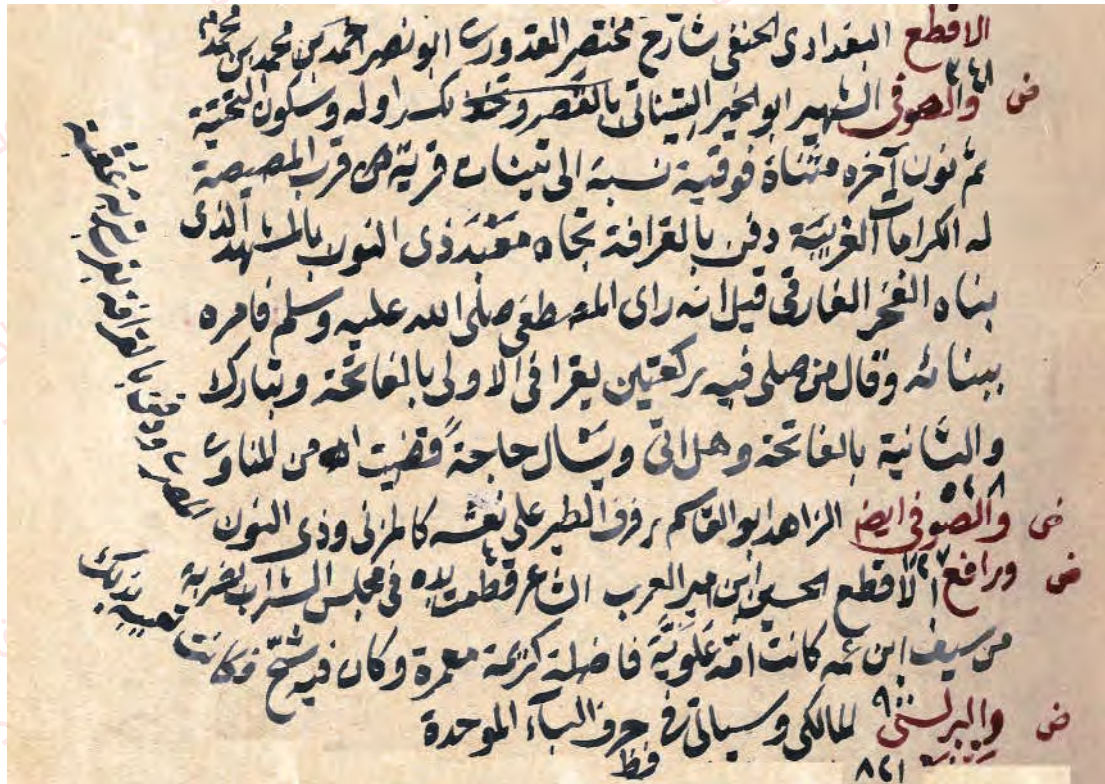 الاقطع البغدادى الحنفى شارح مختصر القدورى ابو نصر احمد بن محمد بن محمد
ض والصوفى ٣٤١ الشهير ابو الخير التيناتى بالقصر وحذ بكسر اوله وسكون التحتية
ثم نون آخره مثناة فوقية نسبة الى تينات قرية من قرب المصيصة
له الكرامات الغريبة دفن بالقرافة تجاه معبد ذى النون بالمشهد الذى
بناه الفخر الفارقى قيل انه راى المصطفى صلى الله عليه وسلم فامره
ببنائه وقال من صلى فيه ركعتين يقرا فى الاولى بالفاتحة وتبارك
والثانية بالفاتحة وهل اتى ويسال حاجة قضيت اه من المناوى
ض والصوفى ايضا الزاهد ابو القاسم رفرف الطير على نعشه كالمزنى وذى النون
ض ورافع الاقطع الحسين ابن امير العرب الشاعر قطعت يده فى مجلس الشراب بضربة
من سيف ابن عمه كانت امه علوية فاضلة كريمة معمرة وكان فيه شح فكانت تعيبه بذلك
ض والبرلسى ٩٠٠ المالكى وسياتى فى حرف الباء الموحدة
فظ
٨٢١